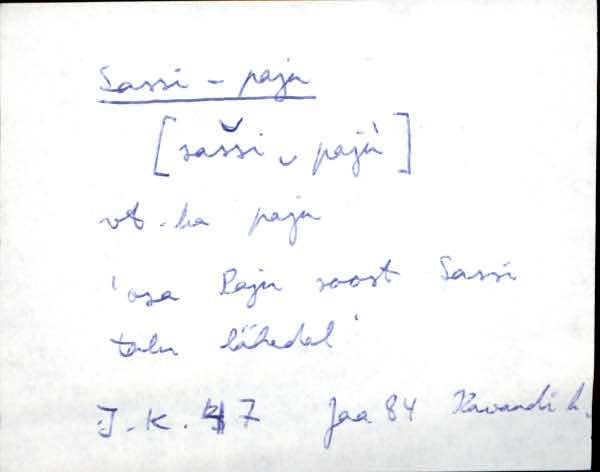 Sassi-paju
[sašši ᴗ pajù]
vt. ka paju
'osa Paju soost Sassi
talu lähedal'
J.K. 47 Jaa 84 Kavandi k.